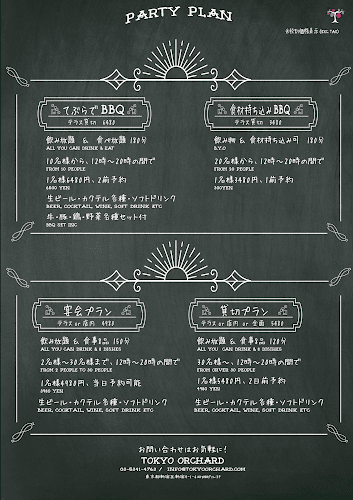 PARTY PLAN
※税別価格表示 (EXC. TAX)
てぶらで BBQ
テラス貸切 6480
飲み放題 & 食べ放題 180分
ALL YOU CAN DRINK & EAT
10名様から、12時〜20時の間で
FROM 10 PEOPLE
1名様6480円、2前予約
6480 YEN
生ビール・カクテル各種・ソフトドリンク
BEER, COCKTAIL, WINE, SOFT DRINK ETC
牛・豚・鶏・野菜各種セット付
BBQ SET INC
食材持ち込みBBQ
テラス貸切 3480
飲み物 & 食材持ち込み可 180分
B.Y.O
20名様から、12時〜20時の間で
FROM 20 PEOPLE
1名様3480円、1前予約
宴会プラン
テラス or 店内 4980
飲み放題 & 食事8品 150分
ALL YOU CAN DRINK & 8 DISHES
2名様〜30名様まで、12時〜20時の間で
FROM 2 PEOPLE TO 30 PEOPLE
1名様4980円、当日予約可能
生ビール・カクテル各種・ソフトドリンク
BEER, COCKTAIL, WINE, SOFT DRINK ETC
貸切プラン
テラス or 店内 or 全面 5480
飲み放題 & 食事8品 120分
ALL YOU CAN DRINK & 8 DISHES
30名様〜、12時〜20時の間で
FROM OVER 30 PEOPLE
1名様5480円、2日前予約
生ビール・カクテル各種・ソフトドリンク
BEER, COCKTAIL, WINE, SOFT DRINK ETC
お問い合わせはお気軽に!
TOKYO ORCHARD
03-5341-4763 / INFO@TOKYOORCHARD.COM